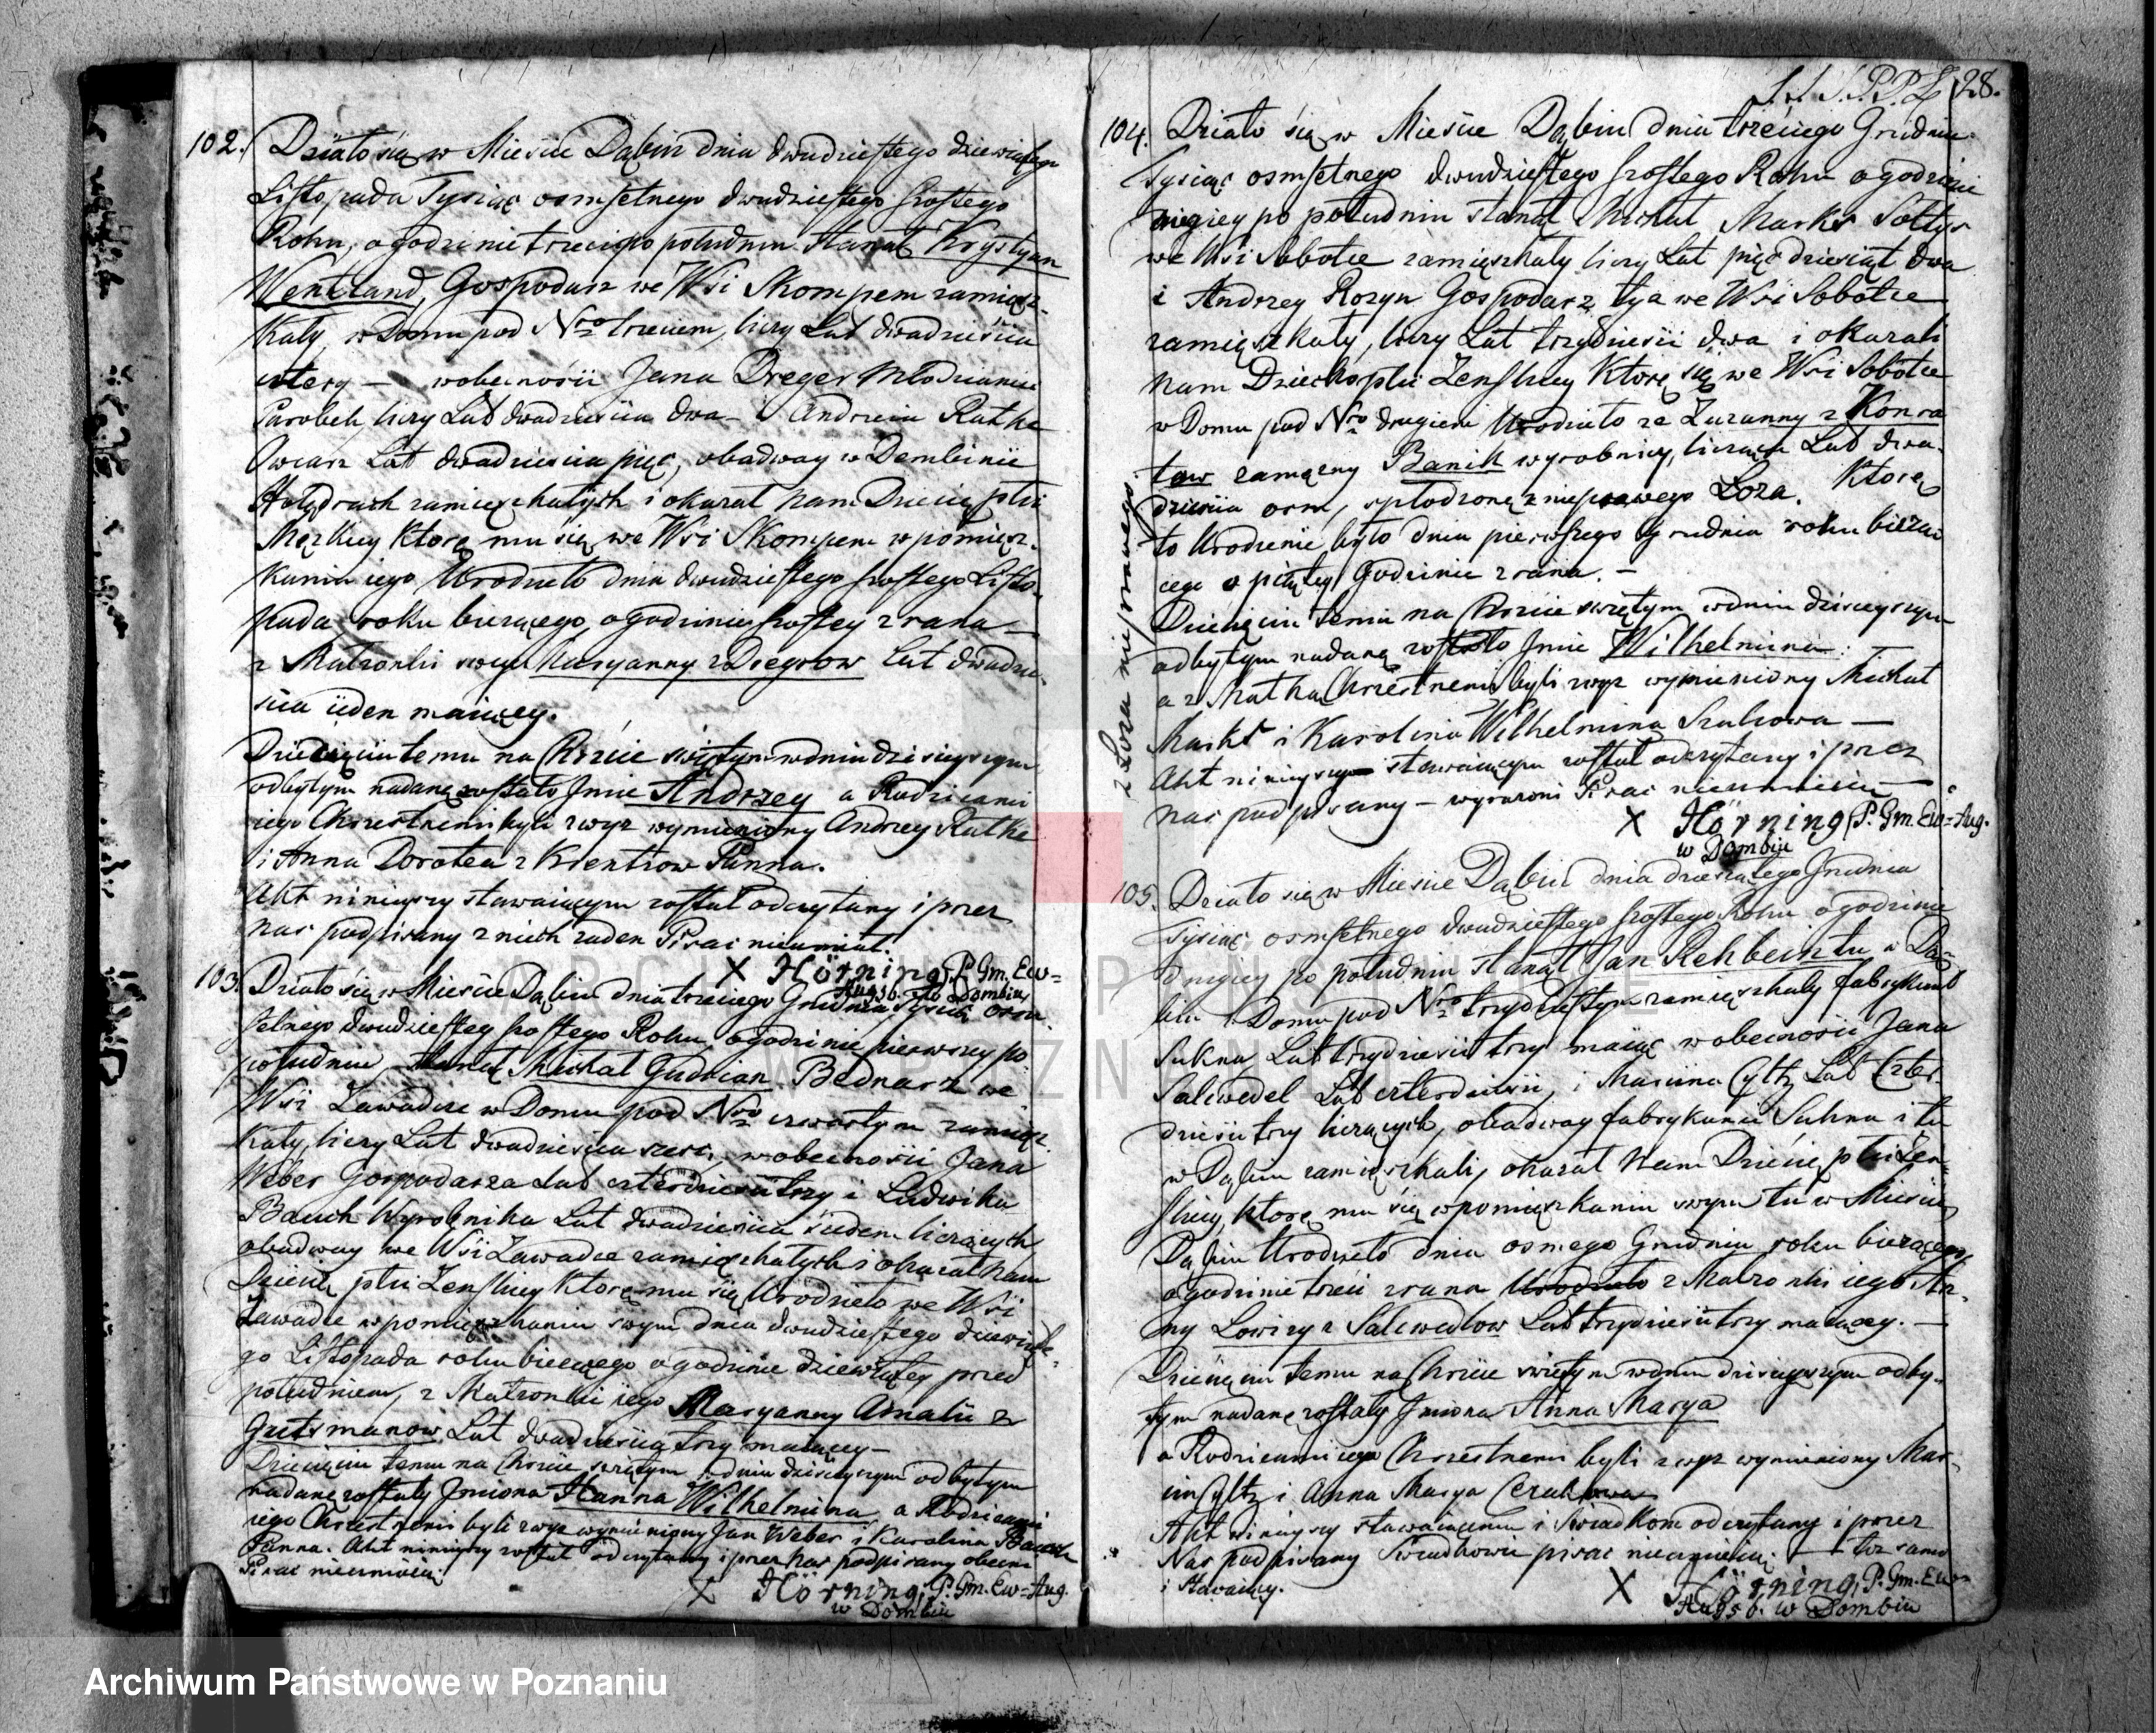 102. Działo się w Mieście Dąbiu dnia dwudziestego dziewiątego
Listopada Tysiąc osmsetnego dwudziestego szostego
Roku, o godzinie trzeci po południu stanął Krystyan
Wentland, Gospodarz we Wsi Skompem zamiesz-
kały, w Domu pod Nro trzeciem, liczy Lat dwadzieścia
cztery — w obecności Jana Dreger Młodzianu
Parobek, liczy Lat dwadzieścia dwa i Andrzeia Rathke
Owczarz Lat dwadzieścia pięć, obadway w Dembinie
Holędrach zamieszkałych i okazał nam Dziecię płci
Męzkiey które mu się we Wsi Skompem w pomiesz-
kaniu iego Urodziło dnia dwudziestego szostego Listo-
pada roku bieżącego, o godzinie szostey z rana —
z Małżonki swey Maryanny z Dregrow Lat dwadzie-
ścia ieden maiącey.
Dziecięciu temu na Chrzcie świętym w dniu dzisieyszym
odbytym nadane zostało Jmie Andrzey a Rodzicami
iego Chrzestnemi byli zwyz wymieniony Andrzey Rathke
i Anna Dorotea z Krentzow Panna.
Akt ninieyszy stawaiącym został odczytany i przez
nas podpisany z nich żaden Pisać nieumiał.
X Hörning P. Gm. Ew=
Augsb. w Dombiu
103. Działo się w Mieście Dąbiu dnia trzeciego Grudnia, Tysiąc osm
setnego dwudziestego szostego Roku, o godzinie pierwszey po
południu, stanął Michał Gudrian Bednarz we
Wsi Zawadce w Domu pod Nro czwartym zamiesz-
kały, liczy Lat dwadzieścia sześć, w obecności Jana
Weber Gospodarza Lat czterdzieści trzy i Ludwika
Bauch Wyrobnika Lat dwadzieścia siedem liczących
obadway we Wsi Zawadce zamieszkałych i okazał nam
Dziecię płci Zenskiey które mu się Urodziło we Wsi
Zawadce w pomieszkaniu swym dnia dwudziestego dziewiąte-
go Listopada roku bieżącego o godzinie dziewiątey przed
południem, z Małżonki iego Maryanny Amalii z
Gutsmanow Lat dwadzieścia trzy maiącey —
Dziecięciu temu na Chrzcie świętym w dniu dzisieyszym odbytym
nadane zostały Jmiona Hanna Wilhelmina, a Rodzicami
iego Chrzestnemi byli zwyz wymieniony Jan Weber i Karolina Bauch
Panna. Akt ninieyszy został odczytany i przez nas podpisany obecni
Pisać nieumieią.
X Hörning, P. Gm. Ew=Aug.
w Dombiu
28.
104. Działo się w Mieście Dąbiu dnia trzeciego Grudnia
Tysiąc osmsetnego dwudziestego szostego Roku o godzinie
po południu stanął Michał Marks Sołtys
we Wsi Sobotce zamieszkały liczy Lat pięćdziesiąt dwa
i Andrzey Rozyn Gospodarz tyż we Wsi Sobotce
zamieszkały, liczy Lat trzydzieści dwa i okazali
nam Dziecko płci Zenskiey Które się we Wsi Sobotce
w Domu pod Nro drugiem Urodziło ze Zuzanny z Konra
tow zamężny Banik wyrobnicy, liczącej Lat dwa-
dzieścia osm, spłodzone z nieprawego Łoża. Które
to Urodzenie było dnia pierwszego Grudnia roku bieżą
cego o piątey Godzinie z rana. —
Dziecięciu temu na Chrzcie świętym w dniu dzisieyszym
odbytym nadane zostało Jmie Wilhelmina.
a z Matką Chrzestnemi byli zwyz wymieniony Michał
Marks i Karolina Wilhelmina Szulcowa —
Akt ninieyszy stawaiącym został odczytany i przez
nas podpisany — wyrażoni Pisać nieumieią —
z Łoża nieprawego.
X Hörning P. Gm. Ew=Aug.
w Dombiu
105. Działo się w Mieście Dąbiu dnia dziesiątego Grudnia
Tysiąc osmsetnego dwudziestego szostego Roku o godzinie
drugiey po południu stanął Jan Rehbein tu w Dą-
biu w Domu pod Nro trzydziestym zamieszkały fabrykant
Sukna Lat trzydzieści trzy maiąc w obecności Jana
Salewedel Lat czterdzieści, i Marcina Cyltz Lat Czter-
dzieści trzy liczących, obadway fabrykanci Sukna i tu
w Dąbiu zamieszkali, okazał nam Dziecię płci Zen-
skiey, które mu się w pomieszkaniu swym tu w Mieście
Dąbiu Urodziło dnia osmego Grudnia roku bieżącego
o godzinie trzeci z rana Urodziło z Małżonki iego An-
ny Lowizy z Salewedlow Lat trzydzieści trzy maiącey. —
Dziecięciu temu na Chrzcie świętym w dniu dzisieyszym odby-
tym nadane zostały Jmiona Anna Marya
a Rodzicami iego Chrzestnemi byli zwyz wymieniony Mar-
cin Cyltz i Anna Marya
Akt ninieyszy stawaiącemu i Swiadkom odczytany i przez
Nas podpisany Swiadkowie pisać nieumieią. toż samo
i stawaiący.
X Hörning, P. Gm. Ew=
Augsb. w Dombiu
ARCHIWUM PAŃSTWOWE
W POZNANIU
Archiwum Państwowe w Poznaniu